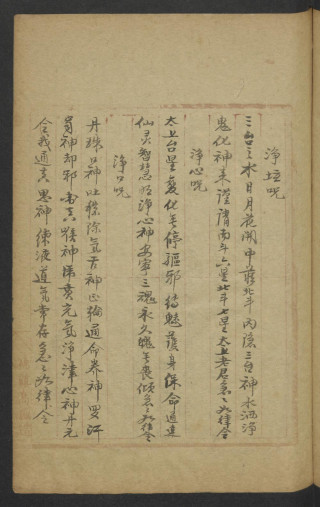 淨坛咒
三台之水日月花開中藏北斗內隐三台神水洒淨
鬼化神來謹請南斗六星北斗七星太上老君急之如律令
淨心咒
太上台星变化無停驅邪縛魅護身保命道達
仙灵智慧明淨心神安寧三魂永久魄無喪傾急之如律令
淨口咒
丹珠口神吐穢除氛舌神正輪通命养神罗千
齒神却邪 神 賁元氣淨津心神丹元
令我通真思神練液道氣常存急之如律令